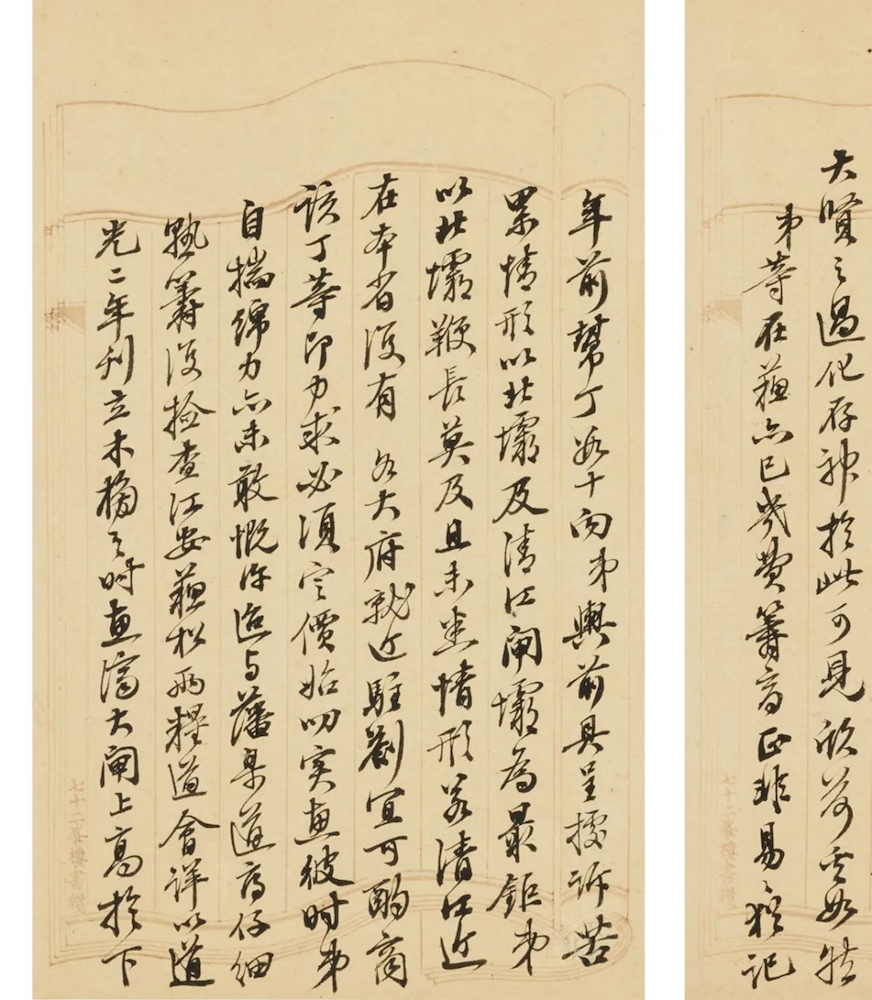 大賢之過化存神於此可見欣荷如
弟等在蘇亦已幾費籌商正非易猶記
年前幫丁數十向弟輿前具呈訴苦
累情形以北壩及清江閘壩為最鉅弟
以北壩鞭長莫及且未悉情形若清江近
在本省復有 各大府就近駐劄宜可酌商
該丁等即力求必須定價始叨實惠彼時弟
自揣綿力亦未敢慨許迨与藩臬道府仔細
熟籌復檢查江安蘇松兩糧道會詳以道
光二年刊立木榜之時惠濟大閘上高於下